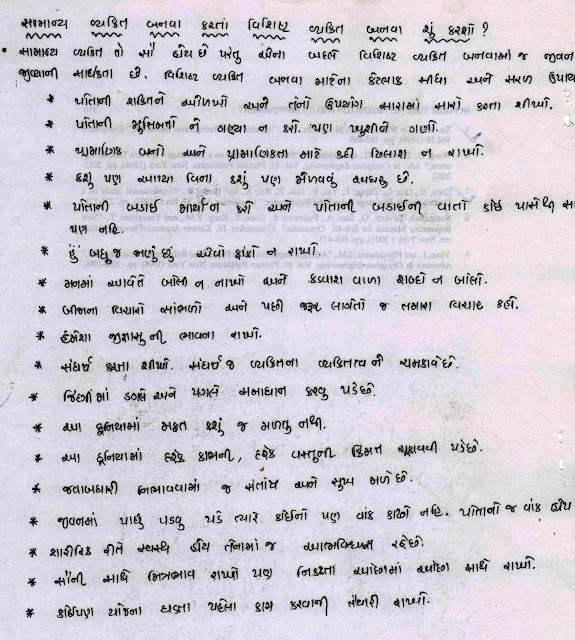 સામાન્ય વ્યકિત બનવા કરતાં વિશિષ્ટ વ્યકિત બનવા શું કરશો ?
• સામાન્ય વ્યકિત તો સૌ હોય છે પરંતુ એના બદલે વિશિષ્ટ વ્યકિત બનવામાં જ જીવન
જીવ્યાની સાર્થકતા છે. વિશિષ્ટ વ્યકિત બનવા માટેના કેટલાક સીધા અને સરળ ઉપાય
* પોતાની શકિતને ઓળખો અને તેનો ઉપયોગ સારામાં સારો કરતા શીખો.
* પોતાની મુસિબતો ને ગણ્યા ન કરો. પણ ખુશીને ગણો.
* પ્રામાણિક બનો અને પ્રામાણિકતા માટે કદી ન રાખો.
* કશું પણ આપ્યા વિના કશું પણ મેળવવું અઘરુ છે.
* પોતાની બડાઈ માર્યા ન કરો અને પોતાની બડાઈની વાતો કોઈ પાસેથી સા
પણ નહિ.
* હું બધુ જ જાણું છું એવો ફાંકો ન રાખો.
* મનમાં આવે તે બોલી ન નાખો અને કડવાશ વાળા શબ્દો ન બોલો.
* બીજાના વિચારો સાંભળો અને પછી જરૂર લાગે તો જ તમારા વિચાર કહો.
* હંમેશા જીજ્ઞાસુ ની ભાવના રાખો.
* સંઘર્ષ કરતા શીખો. સંઘર્ષ જ વ્યકિતના વ્યકિતત્વ ને ચમકાવે છે.
* જિંદગીમાં ડગલે અને પગલે સમાધાન કરવુ પડે છે.
* આ દૂનિયામાં મફત કશું જ મળતુ નથી.
* આ દૂનિયામાં દરેક કામની, દરેક વસ્તુની કિંમત ચૂકાવવી પડે છે.
* જવાબદારી નિભાવવામાં જ સંતોષ અને સુખ મળે છે.
* જીવનમાં પાછુ પડવુ પડે ત્યારે કોઈનો પણ વાંક કાઢો નહિ. પોતાનો જ વાંક હોય
* શારીરિક રીતે સ્વસ્થ હોય તેનામાં જ આત્મવિશ્વાસ રહે છે.
* સૌની સાથે મિત્રભાવ રાખો પણ નિકટતા ઓછામાં ઓછા સાથે રાખો.
* કોઈપણ યોજના ઘડતા પહેલા કામ કરવાની તૈયારી રાખો.